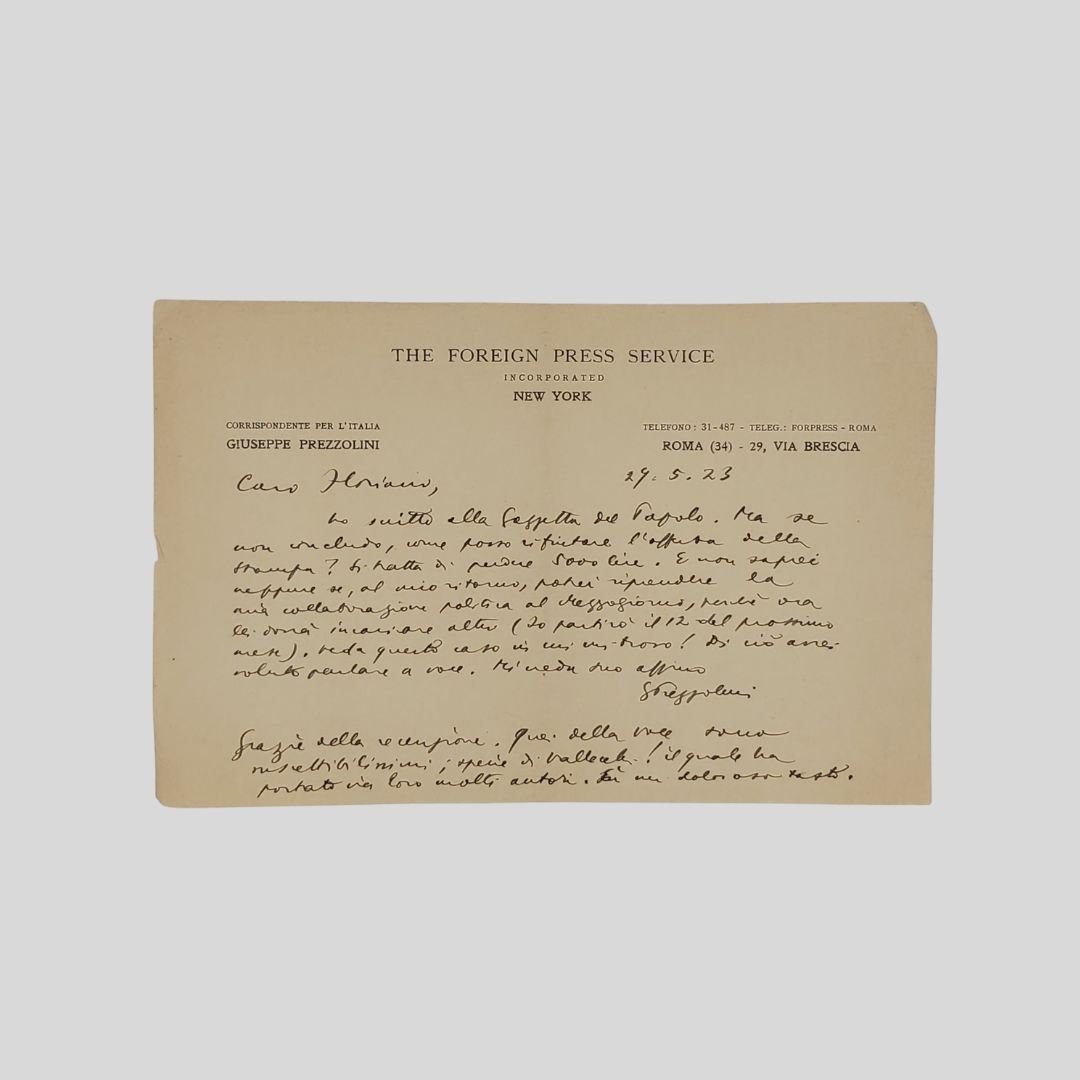 THE FOREIGN PRESS SERVICE
INCORPORATED
NEW YORK
CORRISPONDENTE PER L'ITALIA
GIUSEPPE PREZZOLINI
TELEFONO: 31-487 - TELEG.: FORPRESS - ROMA
ROMA (34) - 29, VIA BRESCIA
Caro Floriano,
29.5.23
ho scritto alla Gazzetta del Popolo. Ma se
non concludo, come posso rifiutare l'offerta della
Stampa? Si tratta di perdere 5000 lire. E non saprei
neppure se, al mio ritorno, potrei riprendere la
mia collaborazione politica al Mezzogiorno, perché ora
lei dovrà incaricare altri (Io partirò il 12 del prossimo
mese). Veda questo caso in cui mi trovo! Di ciò avrei
voluto parlare a voce. Mi creda suo affmo
GPrezzolini
Grazie della recensione. Quei della Voce sono
suscettibilissimi; specie di Vallecchi! il quale ha
portato via loro molti autori. È un doloroso tasto.